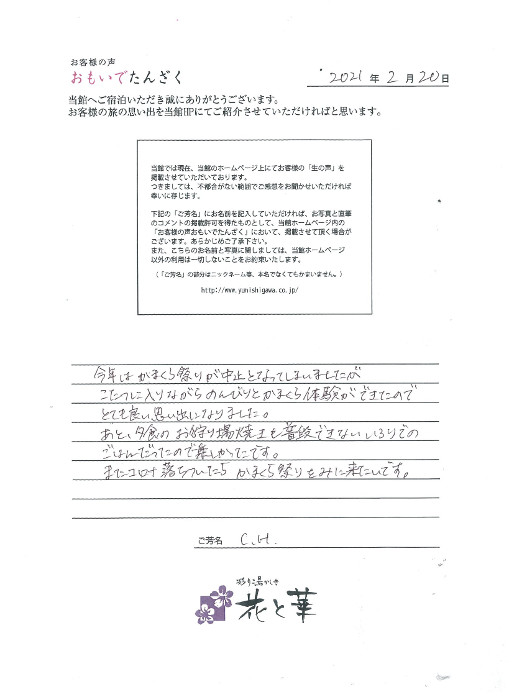 お客様の声
おもいでたんざく
2021年2月20日
当館へご宿泊いただき誠にありがとうございます。
お客様の旅の思い出を当館HPにてご紹介させていただければと思います。
当館では現在、当館のホームページ上にてお客様の「生の声」を
掲載させていただいております。
つきましては、不都合がない範囲でご感想をお聞かせいただければ
幸いに存じます。
下記の「ご芳名」にお名前を記入していただければ、お写真と直筆
のコメントの掲載許可を得たものとして、当館ホームページ内の
「お客様の声おもいでたんざく」において、掲載させて頂く場合が
ございます。あらかじめご了承下さい。
また、こちらのお名前と写真に関しましては、当館ホームページ
以外の利用は一切しないことをお約束いたします。
（「ご芳名」の部分はニックネーム等、本名でなくてもかまいません。）
http://www.yunishigawa.co.jp/
今年はかまくら祭りが中止となってしまいましたが
こたつに入りながらのんびりとかまくら体験ができたので
とても良い思い出になりました。
あと、夕食のお狩り場焼きも普段できないいろりでの
ごはんだったので楽しかったです。
またコロナ落ちついたら かまくら祭りをみに来たいです。
ご芳名 C.H.
彩り湯かしき
花と華